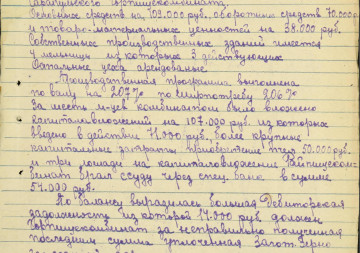 Основных средств на 109.000 руб. оборотных средств 70.000
и товаро-материальных ценностей на 38.000 руб.
Собственных производственных зданий имеется
мельниц из которых 3 действующих
Остальные цеха арендованые.
Производственная программа выполнена
по валу на 207% по ширпотребу 206%
За шесть м-цев комбинатом было вложено
капиталовложений на 107.000 руб. из которых
введено в действии 71.000 руб. более крупные
капитальные затраты приобретение 50.000 руб.
и три лошади на капиталовложении Райпищеком-
бинат брал ссуду через спец. банк в сумме
54.000 руб.
По балансу выразилась большая Дебиторская
задолженность из которой 17.000 руб. должен
Горпищекомбинат за неправильно полученная
последним сумма уплоченная Загот. Зерно